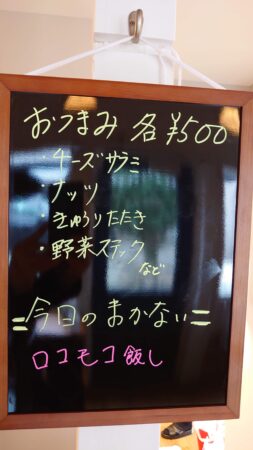 おつまみ 各¥500
・チーズサラミ
・ナッツ
・きゅうりたたき
・野菜スティック
など
=今日のまかない=
ロコモコ飯し